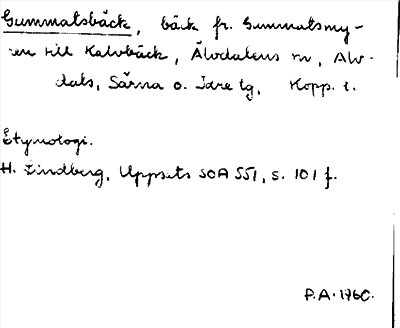 Gummatsbäck, bäck fr. Gummatsmy-
ren till Kalvbäck, Älvdalens sn, Älv-
dals, Särna o. Idre tg, Kopp. l.
Etymologi.
H. Lindberg, Uppsats SOA 551, s. 101 f.
P.A. 1960.